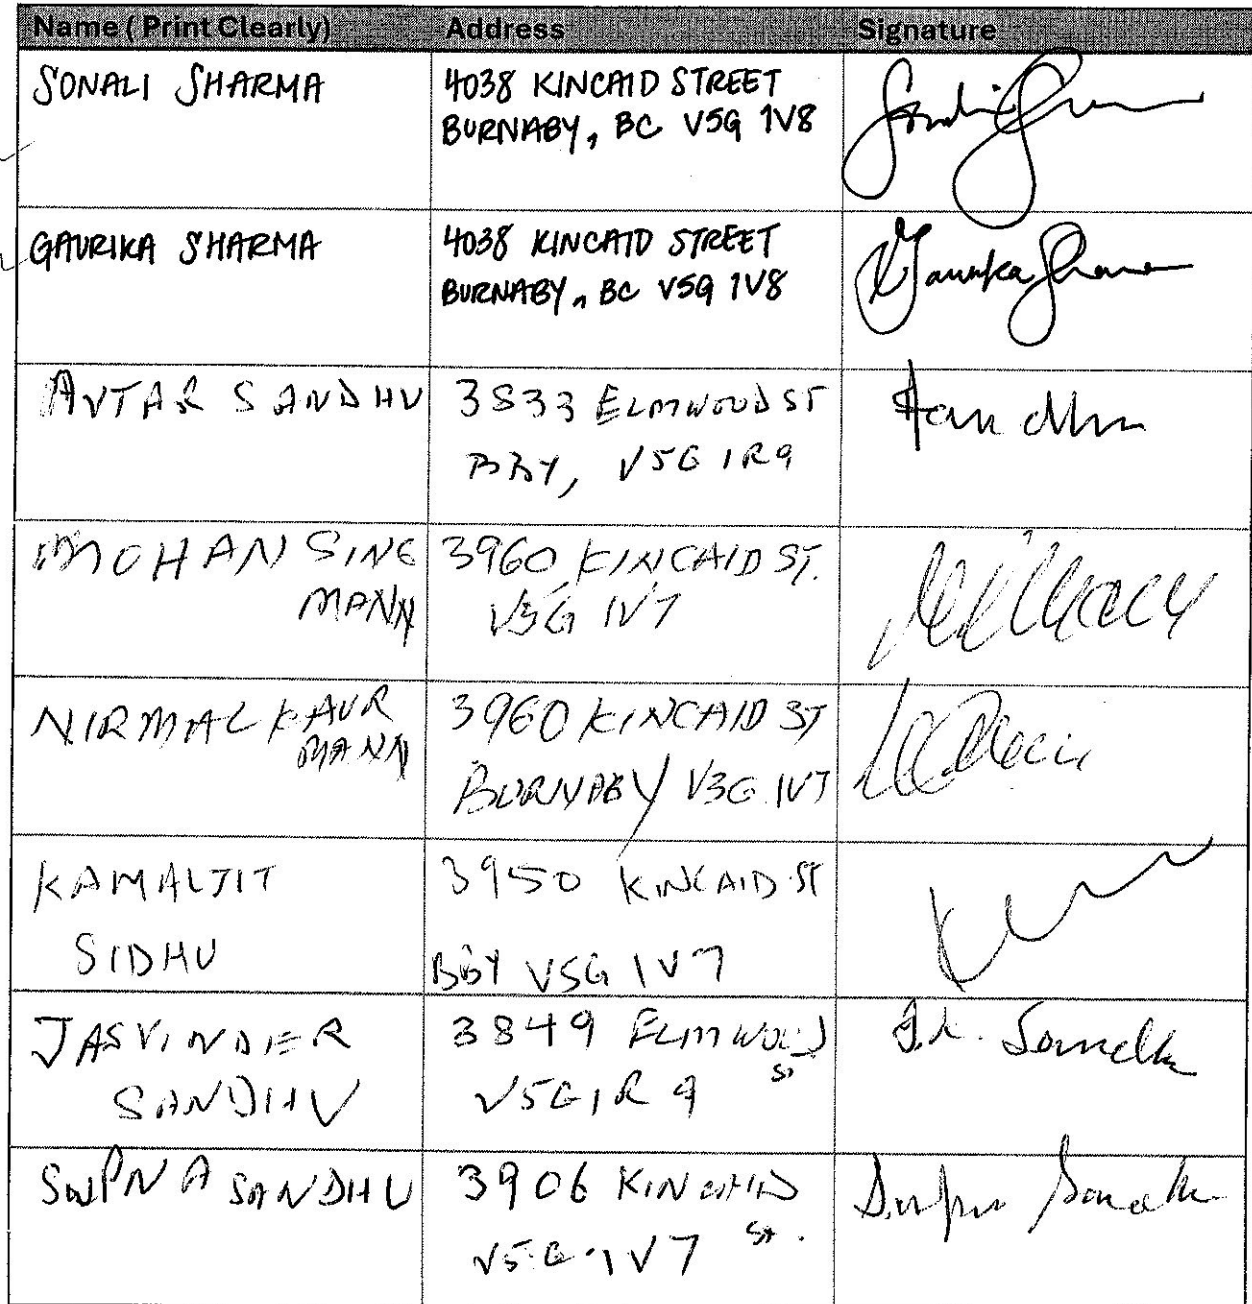 Name ( Print Clearly) Address Signature
SONALI SHARMA
4038 KINCAID STREET
BURNABY, BC V5G 1V8
GAURIKA SHARMA
4038 KINCAID STREET
BURNABY, BC V5G 1V8
Gaurika Sharma
AVTAR SANDHU
3833 ELMWOOD ST
BBY, V5G 1R9
MOHAN SING
MANN
3960 KINCAID ST.
V3G 1V7
NIRMAL KAUR
MANN
3960 KINCAID ST
BURNABY V3G 1V7
KAMALJIT
SIDHU
3950 KINCAID ST
BBY V5G 1V7
JASVINDER
SANDHU
3849 ELMWOOD
ST
V5G 1R9
SWPNA SANDHU
3906 KINCAID
St.
V5G 1V7